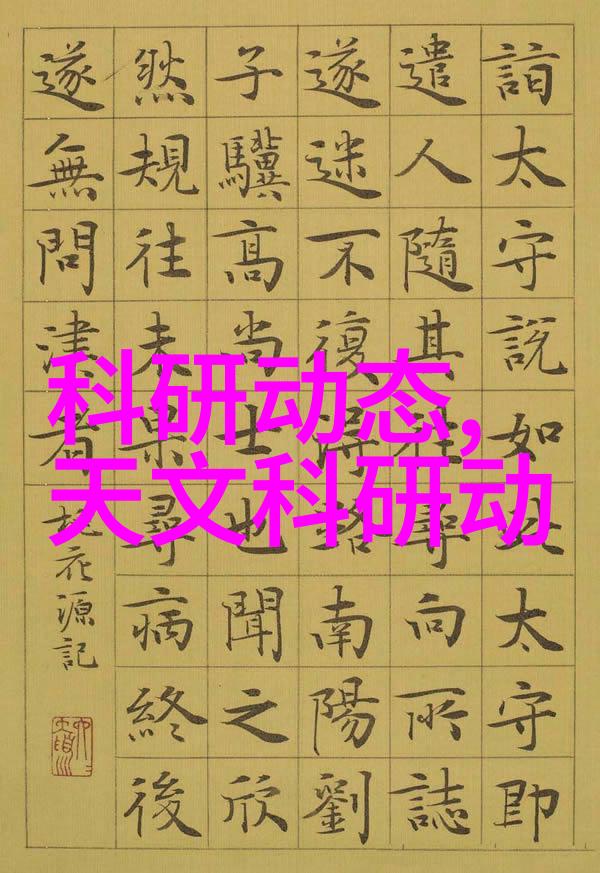 詣太守說如此太守即
遣人隨其往尋向所誌
遂迷不復得路南陽劉
子驥高尚士也聞之欣
然規往未果尋病終後
遂無問津者
桃花源記
科研动态,
天文科研动